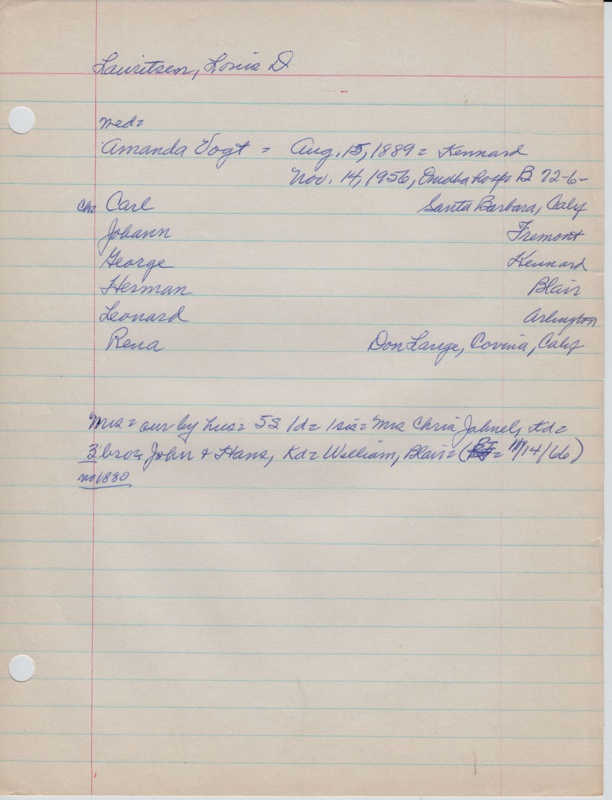 Lauritsen, Louis D
med=
Amanda Vogt = Aug. 15, 1889 = Kennard
Nov. 14, 1956, Omaha Hosp B 72-6-
chi Carl Santa Barbara, Calif
Johann Fremont
George Kennard
Herman Blair
Leonard Arlington
Rena Don Large, Covina, Calif
Mrs = sur by hus = 5S 1d = 1 sis = Mrs Chris Jahnel, Kd =
3 bro = John & Hans, Kd = William, Blair = (= 11/14/66)
no 1880